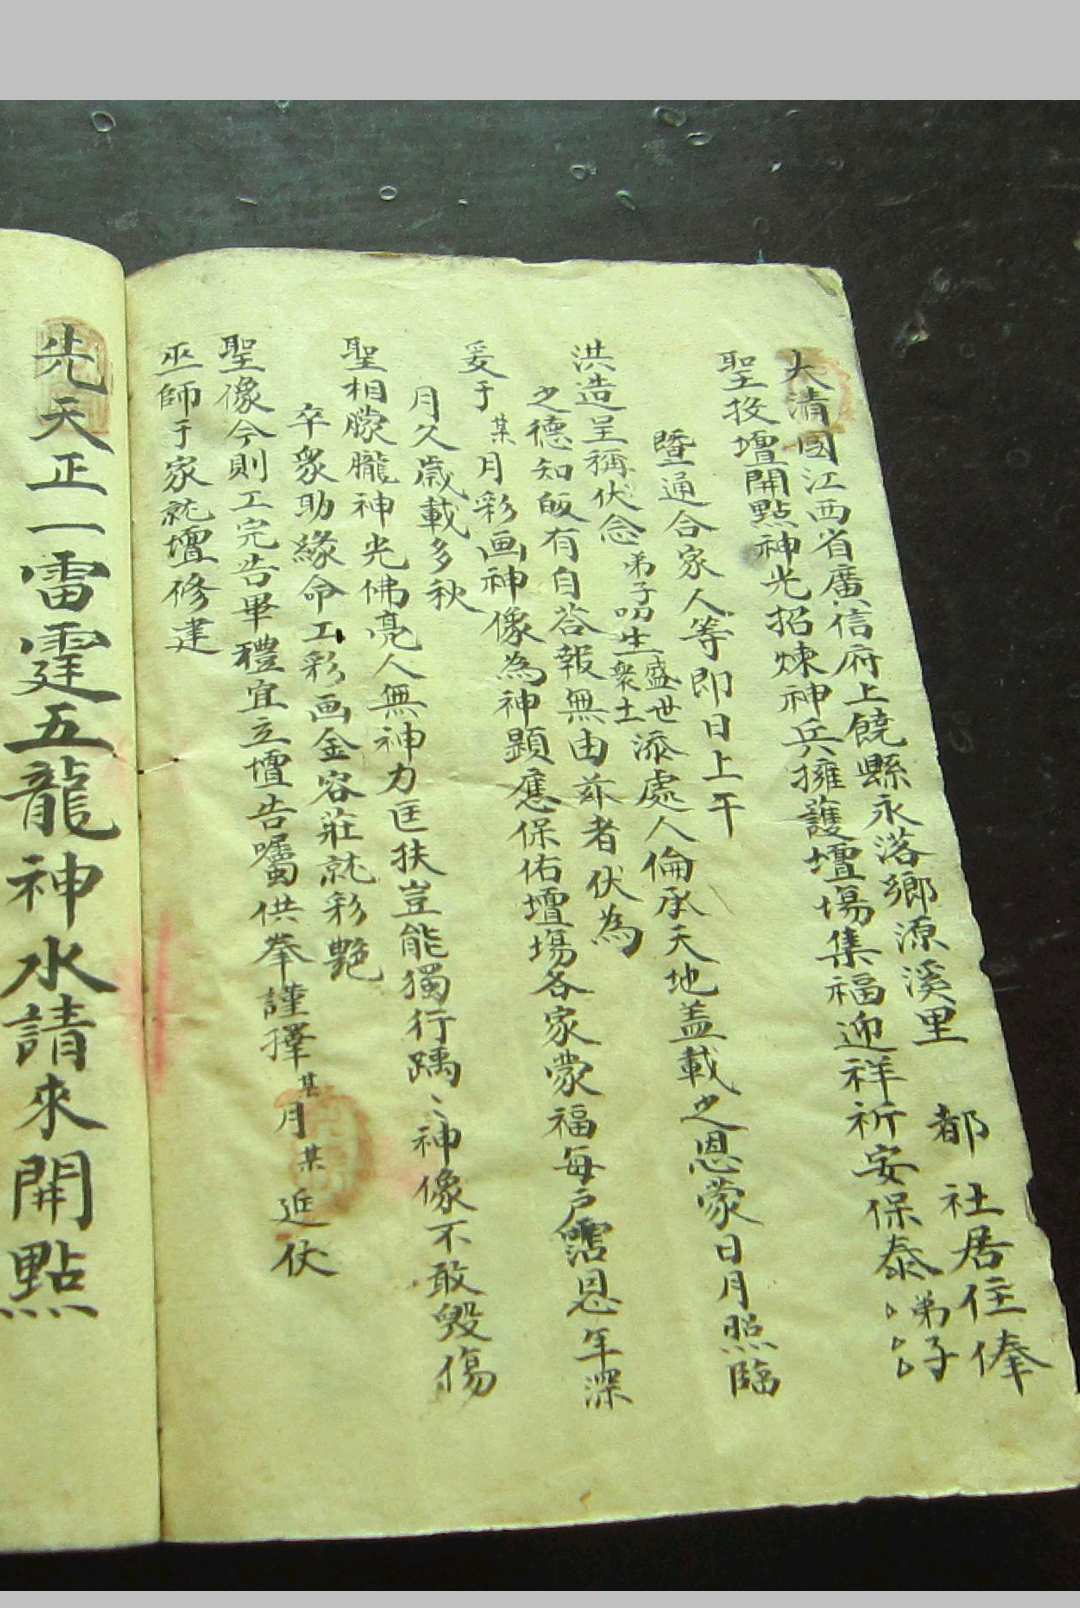 大清國江西省廣信府上饒縣永落鄉源溪里 都 社居住俸
聖投壇開點神光招煉神兵擁護壇塲集福迎祥祈安保泰弟子
暨通合家人等即日上午
洪造呈稱伏念弟子叨生盛世衆土添處人倫承天地盖載之恩蒙日月照臨
之德知皈有自荅報無由茲者伏為
爰于某月彩画神像為神顕應保佑壇塲各家蒙福每戶霑恩年深
月久歲載多秋
聖相朦朧神光佛亮人無神力匡扶豈能獨行踽〻神像不敢毀傷
卒衆助緣命工彩画金容莊就彩艶
聖像今則工完告畢禮宜立壇告囑供奉謹擇某月某 近伏
巫師于家就壇修建
先天正一雷霆五龍神水請來開點